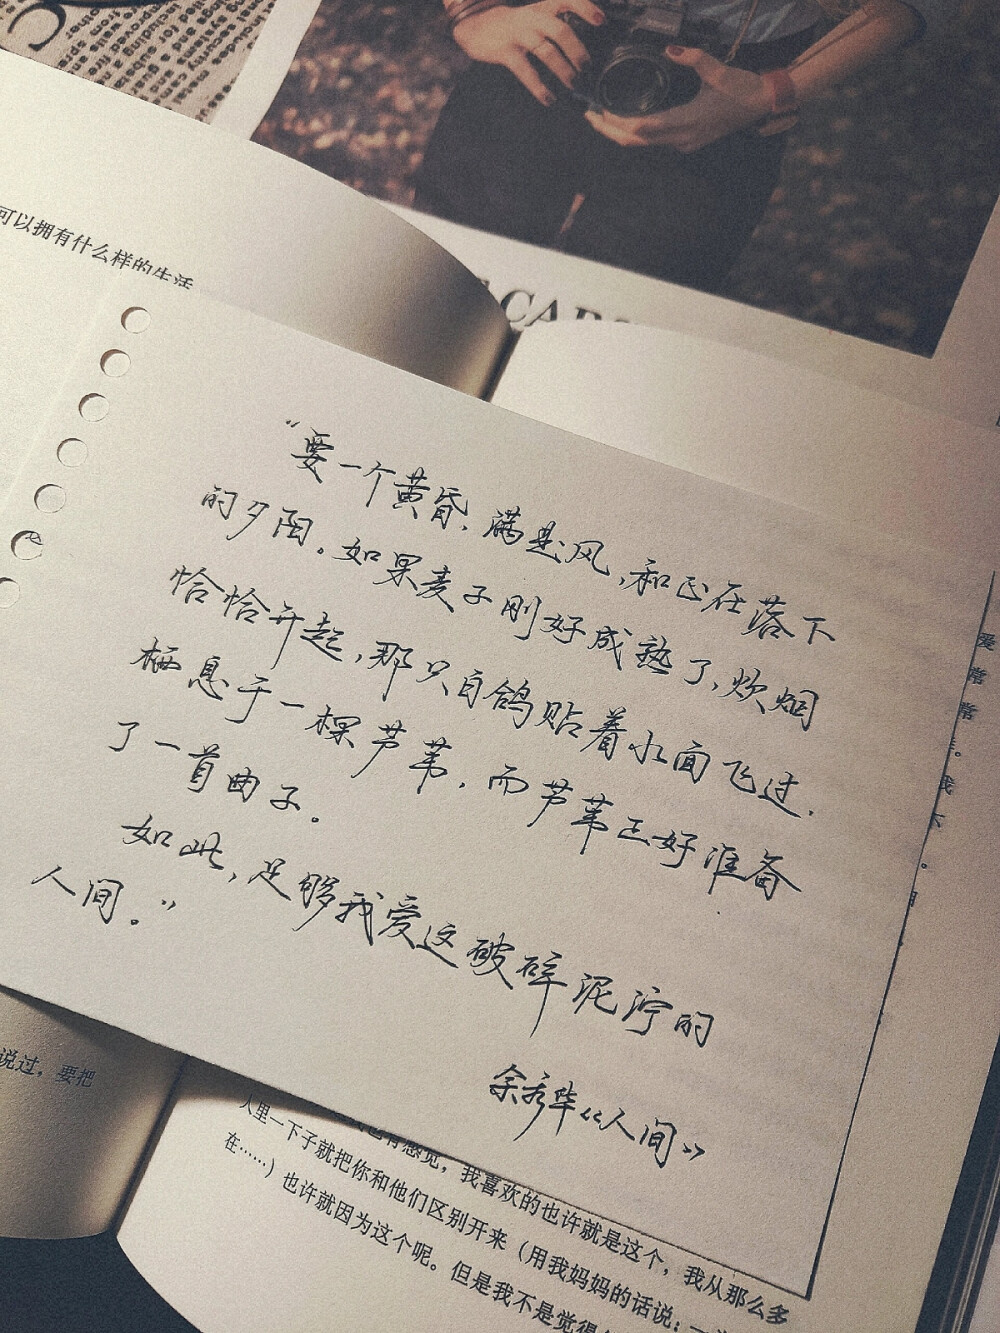 可以拥有什么样的生活
CAR
“要一个黄昏,满是风,和正在落下
的夕阳。如果麦子刚好成熟了,炊烟
恰恰升起,那只白鸽贴着水面飞过,
栖息于一棵芦苇,而芦苇正好准备
了一首曲子。
如此,足够我爱这破碎泥泞的
人间。”
余秀华《人间》
爱
常
常
我
不
。
说过，要把
感觉，我喜欢的也许就是这个，我从那么多
人里一下子就把你和他们区别开来（用我妈妈的话说：一
在……）也许就因为这个呢。但是我不是觉得